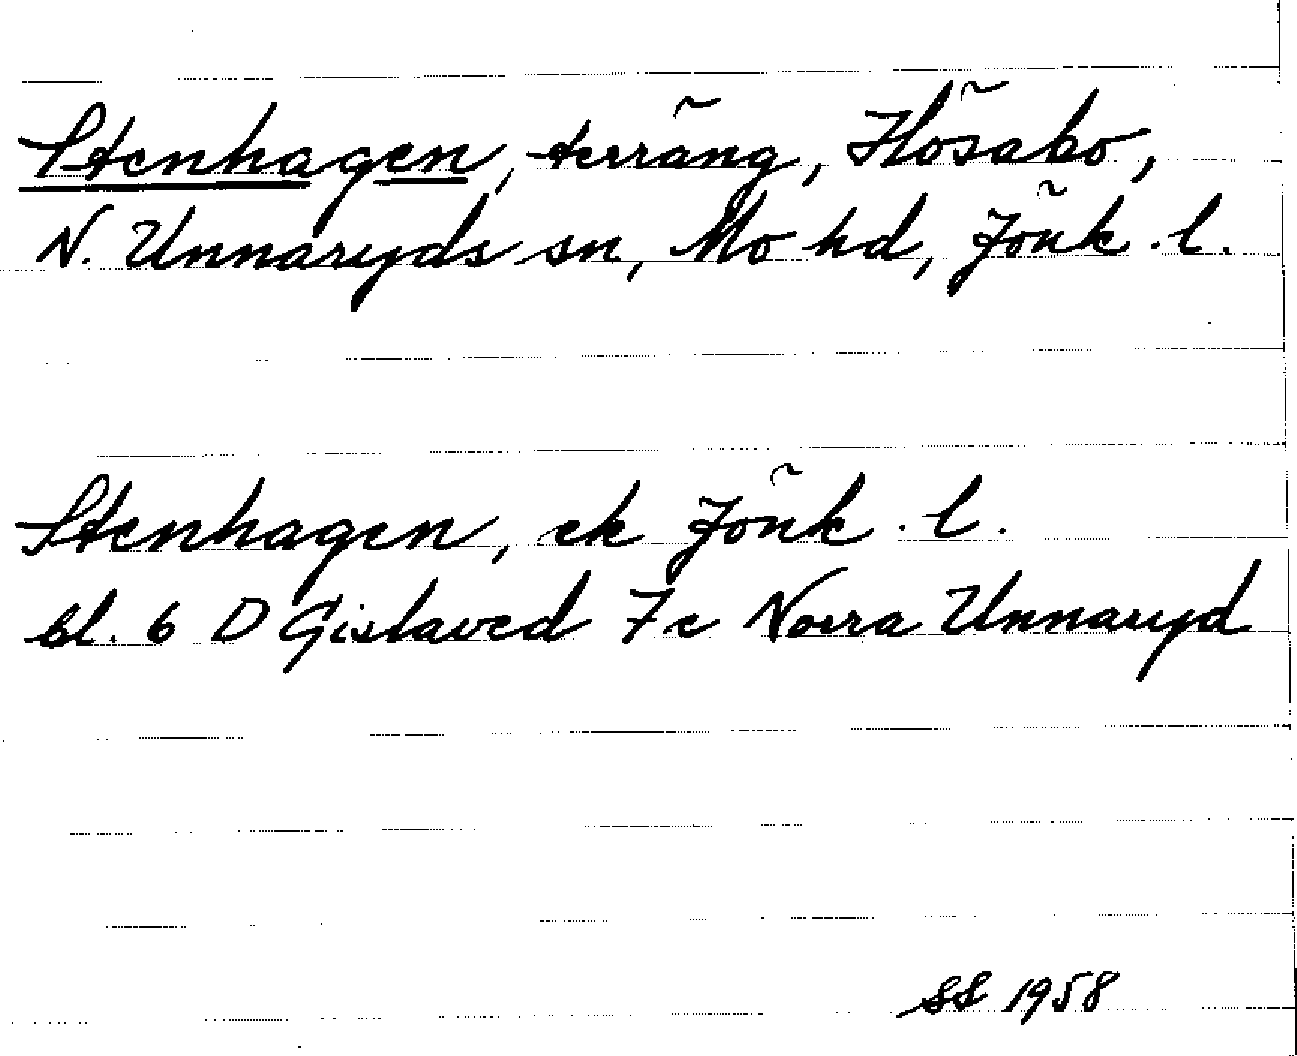 Stenhagen, terräng, Hösabo,
N. Unnaryds sn, Mo hd, Jönk. l.
Stenhagen, ek Jönk. l.
bl. 6 D Gislaved 7c Norra Unnaryd
SS 1958